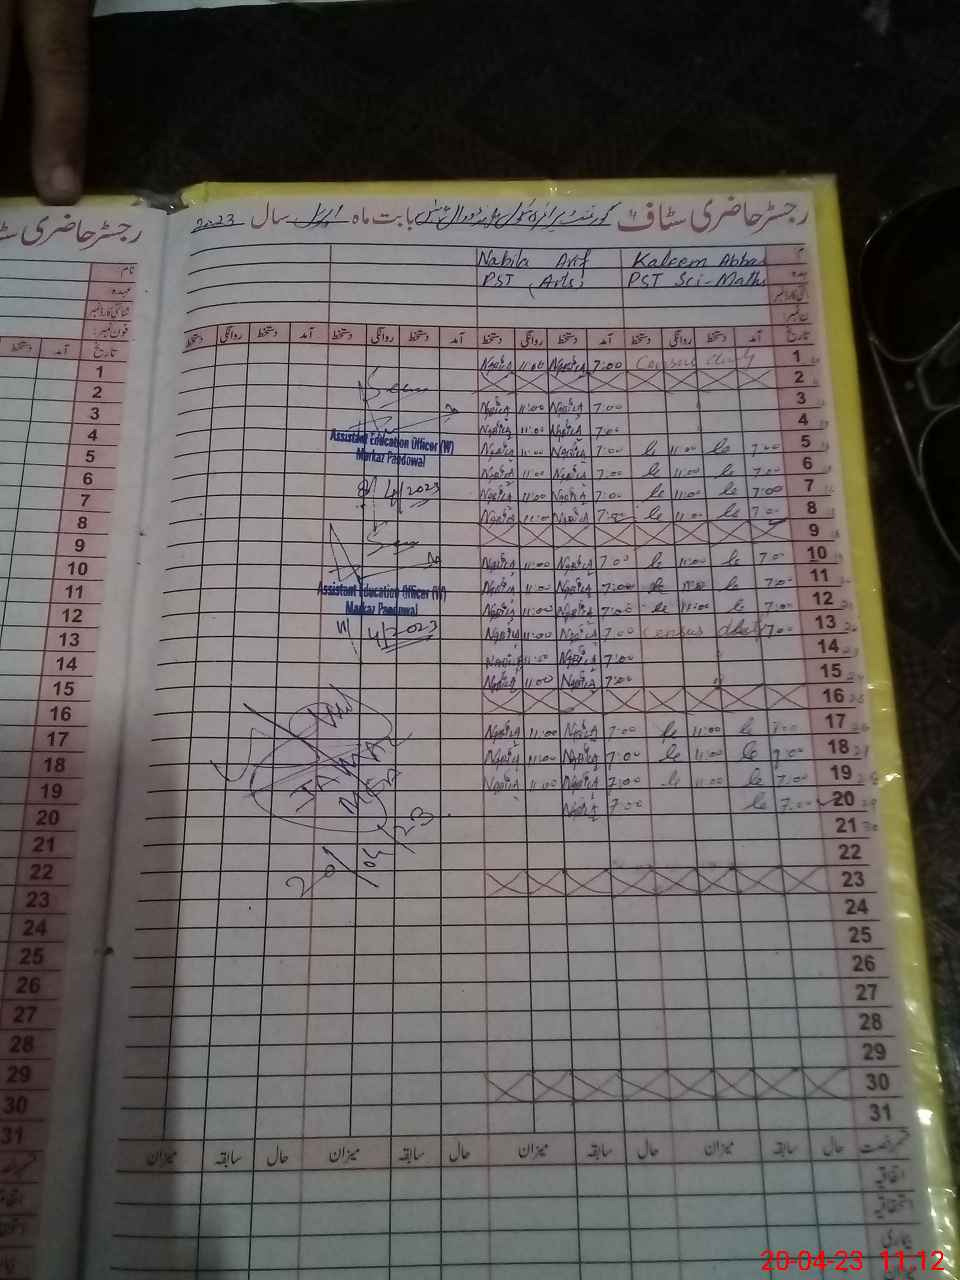 رجسٹر حاضری سٹاف گورنمنٹ بابت ماہ اپریل سال 2023
Nabila Arif Kaleem Abbas
PST (Arts) PST Sci-Maths
دستخط روانگی دستخط آمد دستخط روانگی دستخط آمد دستخط روانگی دستخط آمد دستخط روانگی دستخط آمد تاریخ
Nabila 11:00 Nabila 7:00 Census duty 1
2
Nabila 11:00 Nabila 7:00 3
Nabila 11:00 Nabila 7:00 4
Nabila 11:00 Nabila 7:00 11:00 7:00 5
Nabila 11:00 Nabila 7:00 11:00 7:00 6
Nabila 11:00 Nabila 7:00 11:00 7:00 7
Nabila 11:00 Nabila 7:00 11:00 7:00 8
9
Nabila 11:00 Nabila 7:00 11:00 7:00 10
Nabila 11:00 Nabila 7:00 11:00 7:00 11
Nabila 11:00 Nabila 7:00 11:00 7:00 12
Nabila 11:00 Nabila 7:00 Census duty 7:00 13
Nabila 11:00 Nabila 7:00 " 14
Nabila 11:00 Nabila 7:00 " 15
16
Nabila 11:00 Nabila 7:00 11:00 7:00 17
Nabila 11:00 Nabila 7:00 11:00 7:00 18
Nabila 11:00 Nabila 7:00 11:00 7:00 19
Nabila 7:00 7:00 20
21
22
23
24
25
26
27
28
29
30
31
Assistant Education Officer (W)
Markaz Pandowal
8/4/2023
Assistant Education Officer (W)
Markaz Pandowal
11/4/2023
JAMAL
MEA
20/04/23
میزان سابقہ حال میزان سابقہ حال میزان سابقہ حال میزان سابقہ حال
اتفاقیہ
استحقاقیہ
بیماری
رجسٹر حاضری
نام
عہدہ
شناختی کارڈ نمبر
فون نمبر
دستخط آمد تاریخ
1
2
3
4
5
6
7
8
9
10
11
12
13
14
15
16
17
18
19
20
21
22
23
24
25
26
27
28
29
30
31
20-04-23 11:12